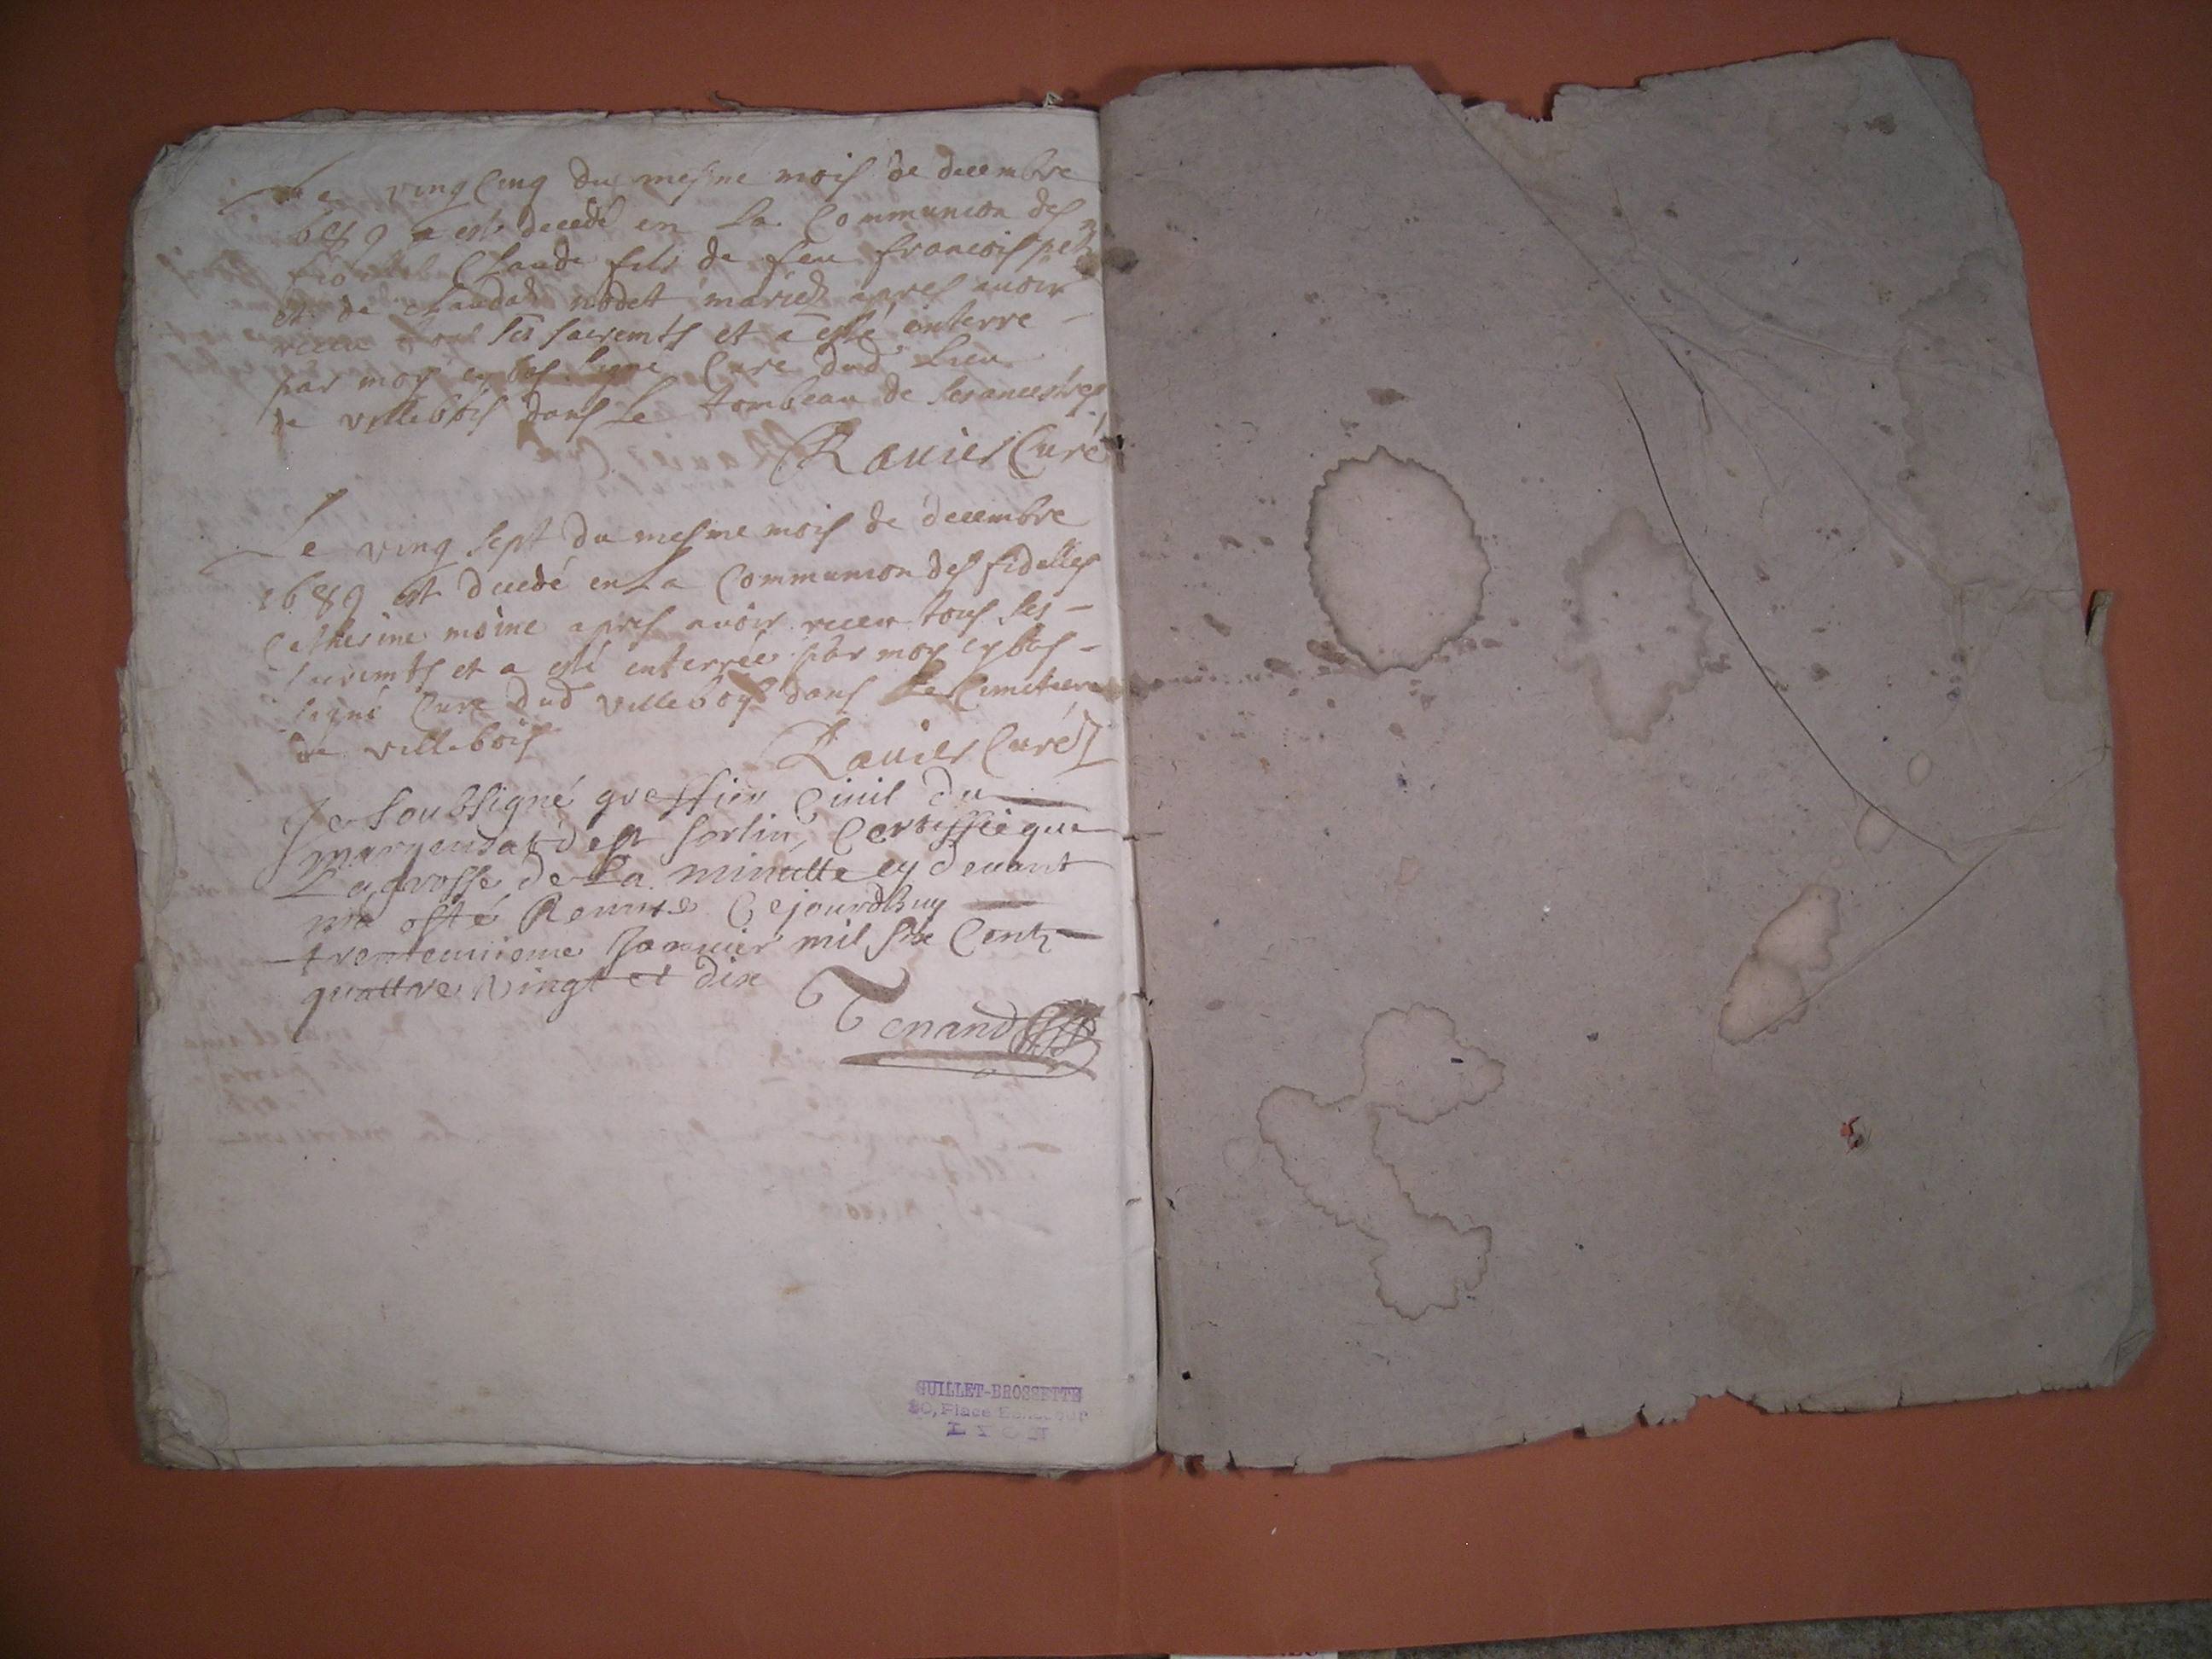 Le vingcinq du mesme mois de decembre
1689 est decedé en la Communion des
Claude fils de feu francois
et de claud nodet mariez apres avoir
receu tous ses sacremts et a esté enterre
par moy cy bas signé Curé dud lieu
de villebois dans le tombeau de ses ancestres
Ravier Curé
Le ving sept du mesme mois de decembre
1689 est decedé en la Communion des fidelles
Catherine moine apres avoir receu tous ses
sacremts et a esté enterrée par moy cy bas
signé Curé dud villeboys dans le Cimetiere
de villebois
Ravier Curé
Je soubsigné greffier Civil du
marquisat de st sorlin, Certiffie que
La grosse de La minutte cy devant
ma esté Remise Cejourdhuy
trenteunieme Janvier mil six Centz
quattre vingt et dix
Tenand
GUILLET-BROSSETTE
30, Place Bellecour
LYON